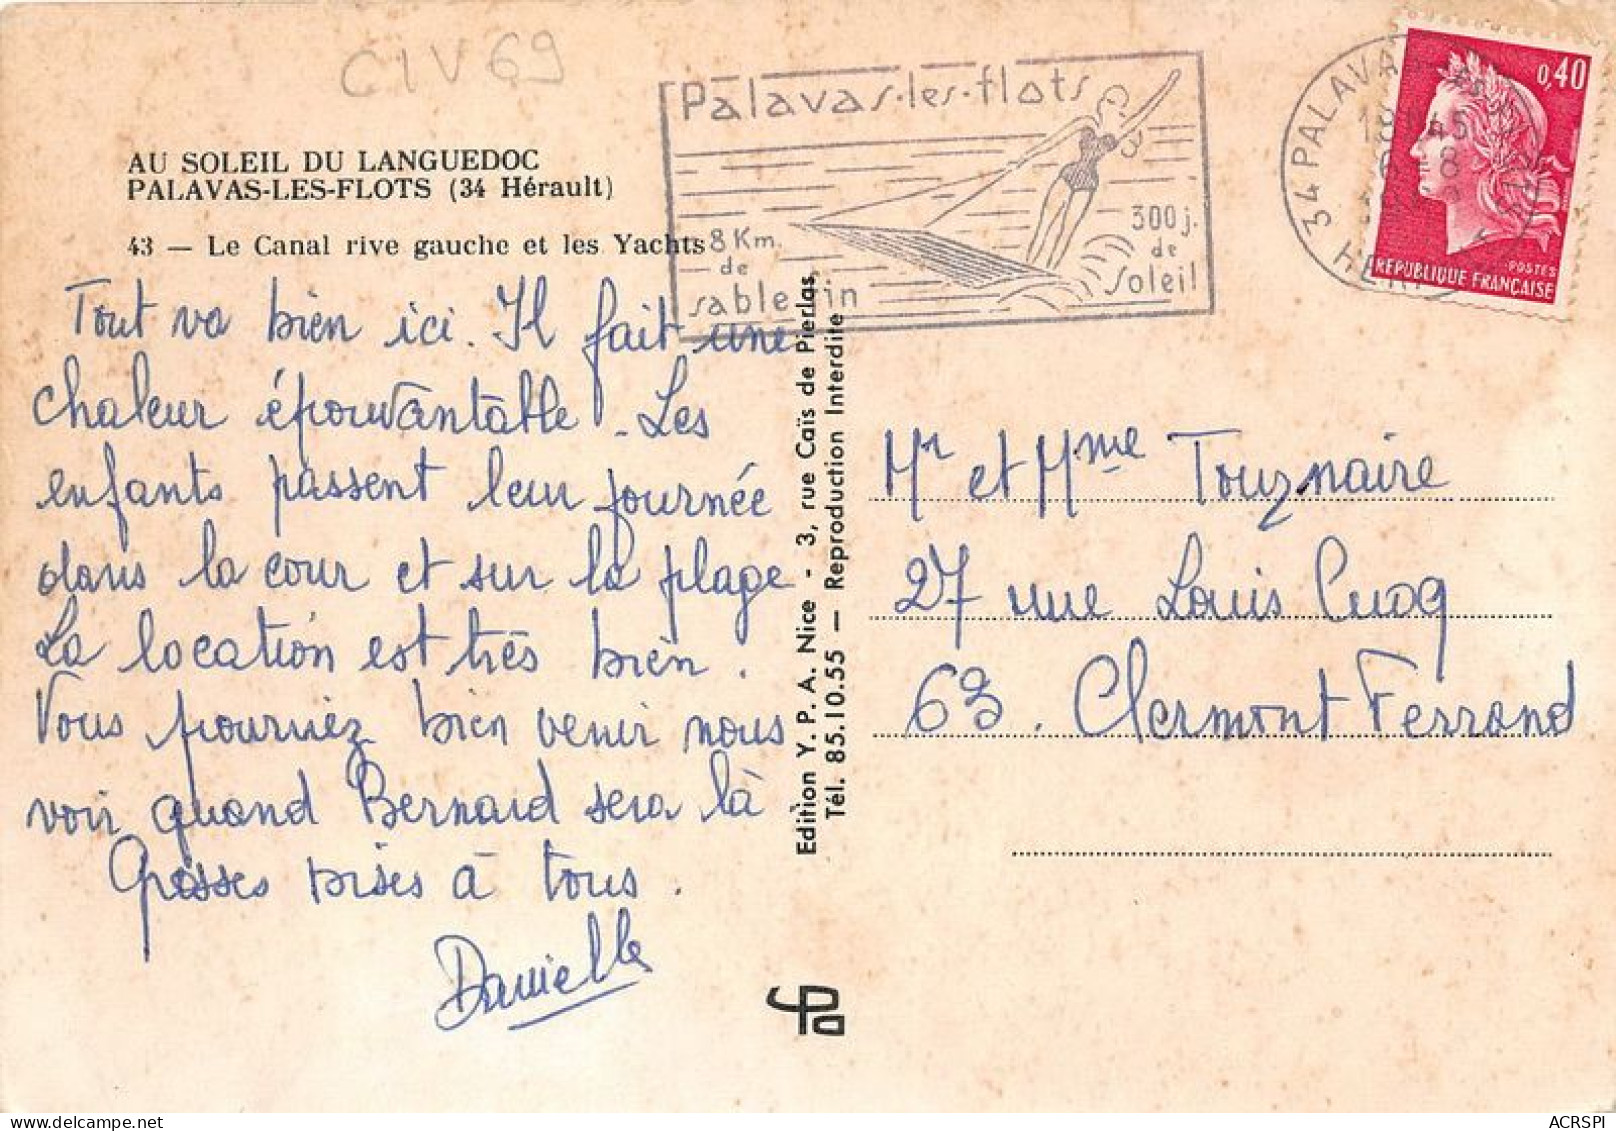 CIV 69
AU SOLEIL DU LANGUEDOC
PALAVAS-LES-FLOTS (34 Hérault)
43 — Le Canal rive gauche et les Yachts
Palavas-les-flots
8 Km.
de
sable fin
300 j.
de
Soleil
34 PALAVAS
18 45
8
0,40
POSTES
REPUBLIQUE FRANÇAISE
Tout va bien ici. Il fait une
chaleur épouvantable. Les
enfants passent leur journée
dans la cour et sur la plage
La location est très bien.
Vous pourriez bien venir nous
voir quand Bernard sera là
Grosses bises à tous.
Danielle
Edition Y. P. A. Nice - 3, rue Caïs de Pierlas,
Tél. 85.10.55 — Reproduction Interdite
Mr et Mme Tournaire
27 rue Louis Cuoq
63. Clermont Ferrand
ACRSPI